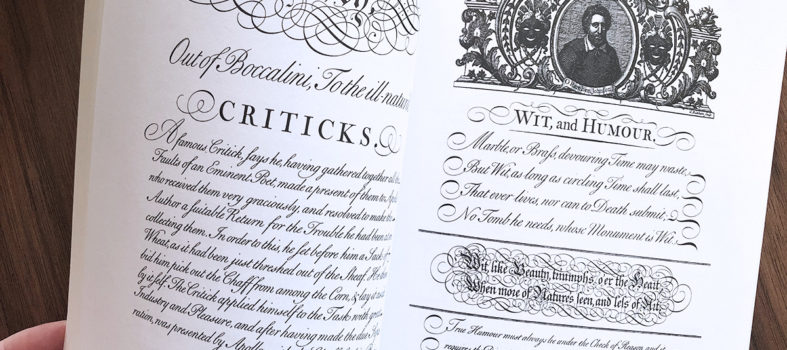 Out of Boccalini, To the ill-natur
CRITICKS.
A famous Critick, says he, having gathered together all the
Faults of an Eminent Poet, made a present of them to
who received them very graciously, and resolved to make the
Author a suitable Return for the Trouble he had been at in
collecting them. In order to this, he set before him a Sack of
Wheat, as it had been just threshed out of the Sheaf. He then
bid him pick out the Chaff from among the Corn, & lay it aside
by it self. The Critick applied himself to the Task with great
Industry and Pleasure, and after having made the due Sepa-
ration, was presented by Apollo
WIT, and HUMOUR.
Marble, or Brass, devouring Time may waste,
But Wit, as long as circling Time shall last,
That ever lives, nor can to Death submit;
No Tomb he needs, whose Monument is Wit.
Wit, like Beauty, triumphs o'er the Heart
When more of Nature's seen, and less of Art.
True Humour must always lie under the Check of Reason, and it